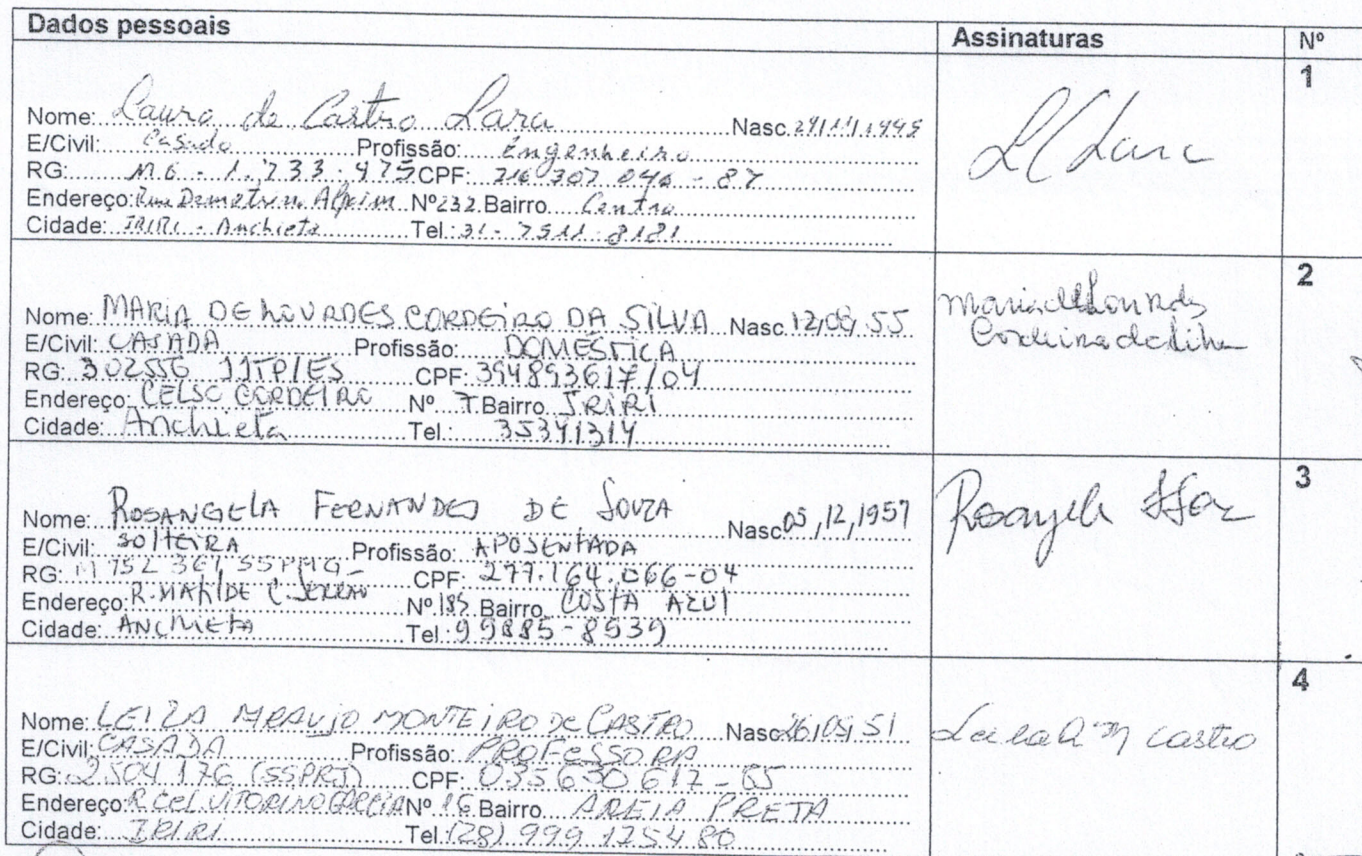 Dados pessoais Assinaturas Nº
1
Nome: Lauro de Castro Lara Nasc.
E/Civil: Casado Profissão: Engenheiro
RG: MG - 1.233.975 CPF: 216 307 046 - 87
Endereço: Rua Alpoim Nº 232 Bairro Centro
Cidade: IRIRI - Anchieta Tel.: 31 - 7511 - 8181
L C Lara
2
Nome: MARIA DE LOURDES CORDEIRO DA SILVA Nasc. 12,08,55
E/Civil: CASADA Profissão: DOMESTICA
RG: 302556 CPF: 394893617/04
Endereço: CELSO CORDEIRO Nº Bairro IRIRI
Cidade: Anchieta Tel.: 35341314
Maria Lourdes
3
Nome: ROSANGELA FERNANDES DE SOUZA Nasc. 05,12,1957
E/Civil: SOLTEIRA Profissão: APOSENTADA
RG: M 752 367 SSPMG CPF: 277.164.066-04
Endereço: R. MATILDE C. Nº 185 Bairro COSTA AZUL
Cidade: ANCHIETA Tel.: 99885-8539
4
Nome: LEILA ARAUJO MONTEIRO DE CASTRO Nasc. 26,05,51
E/Civil: CASADA Profissão: PROFESSORA
RG: 2504 176 (SSPRJ) CPF: 035630617-65
Endereço: R CEL VITORINO GARCIA Nº 16 Bairro AREIA PRETA
Cidade: IRIRI Tel. (28) 999 125480
Leila A M castro